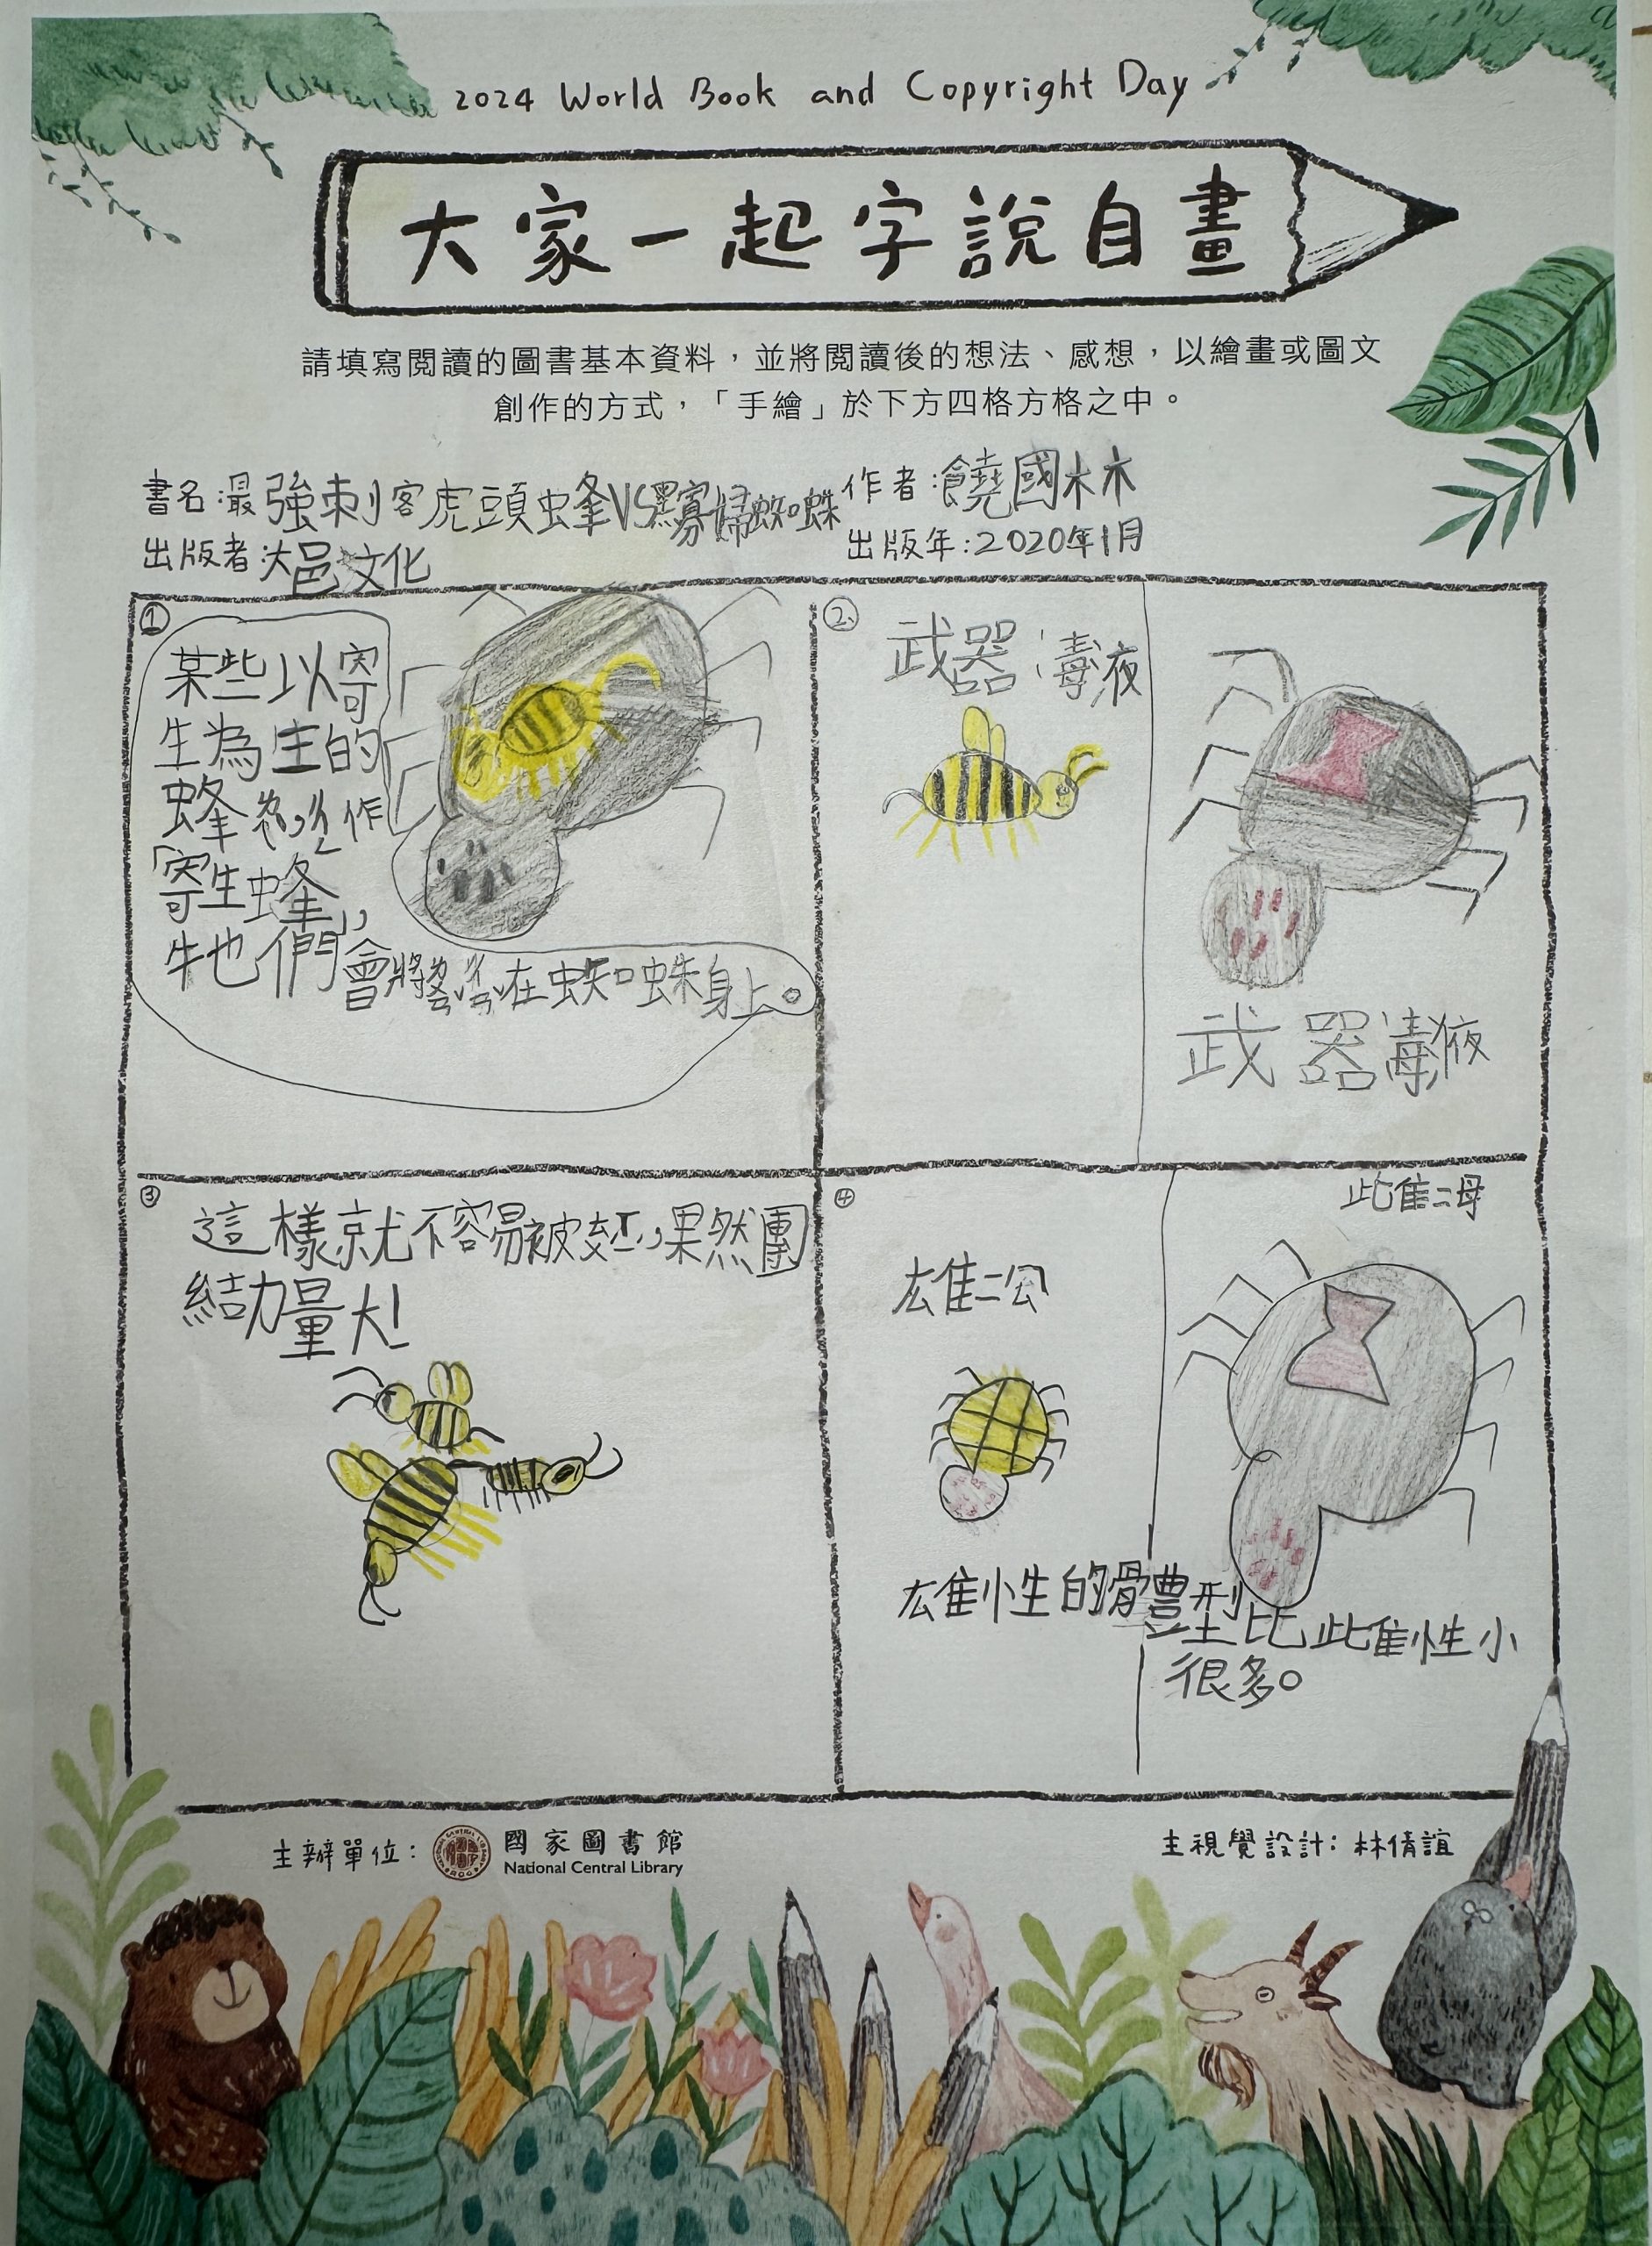 2024 World Book and Copyright Day
大家一起字說自畫
請填寫閱讀的圖書基本資料，並將閱讀後的想法、感想，以繪畫或圖文
創作的方式，「手繪」於下方四格方格之中。
書名:最強刺客虎頭蜂VS黑寡婦蜘蛛
作者:饒國林
出版者:大邑文化
出版年:2020年1月
①
某些以寄
生為生的
蜂 作
「寄生蜂」,
牠們會將 在蜘蛛身上。
②
武器:毒液
武器毒液
③
這樣就不容易被 ,果然團
結力量大!
④
雄=公
雌=母
雄性的體型比雌性小
很多。
主辦單位：
國家圖書館
National Central Library
主視覺設計：林倩誼